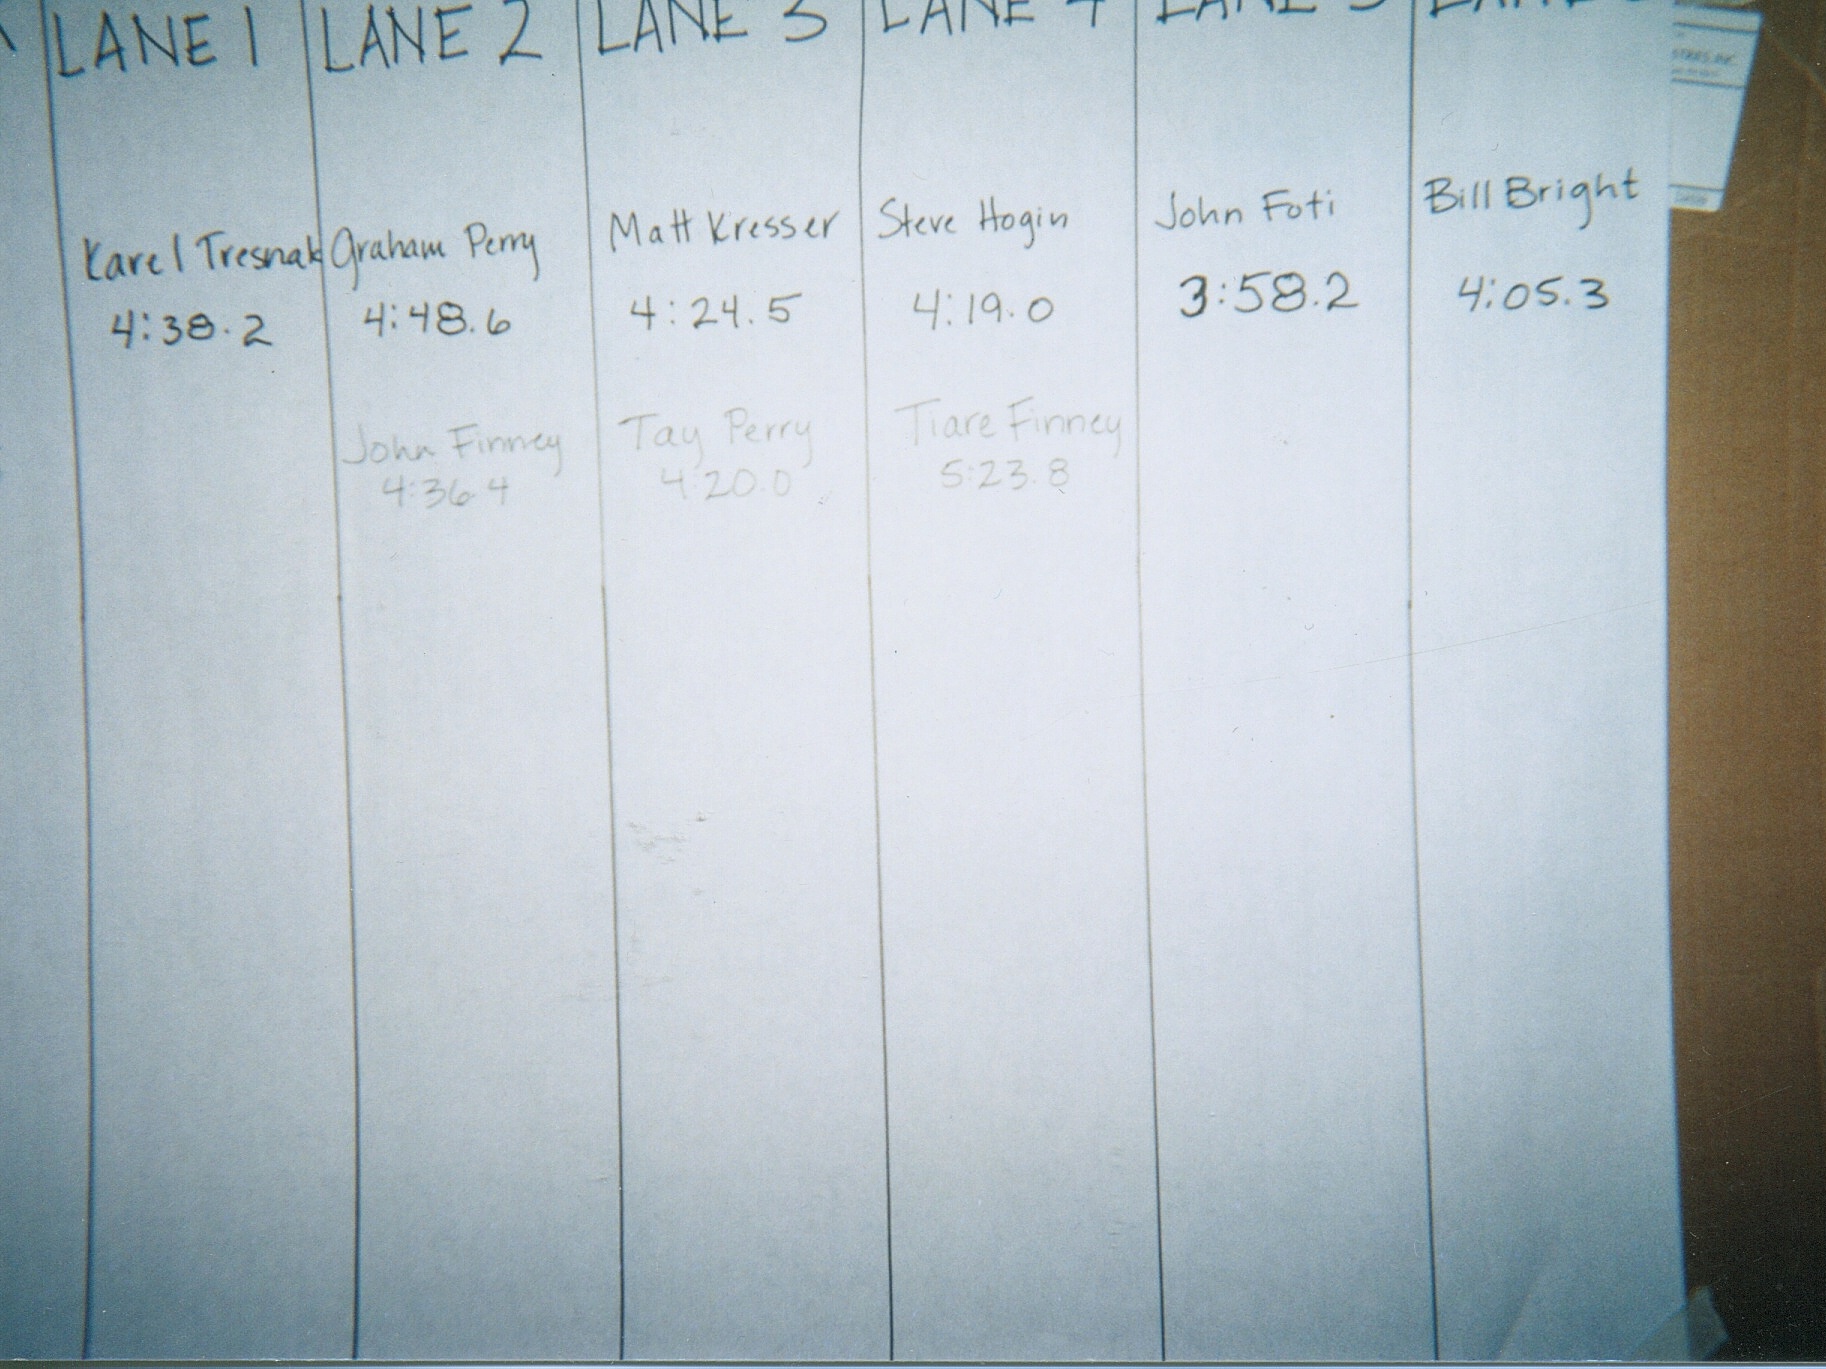 LANE 1 LANE 2 LANE 3 LANE 4 LANE 5 LANE
Karel Tresnak Graham Perry Matt Kresser Steve Hogin John Foti Bill Bright
4:38.2 4:48.6 4:24.5 4:19.0 3:58.2 4:05.3
John Finney Tay Perry Tiare Finney
4:36.4 4:20.0 5:23.8